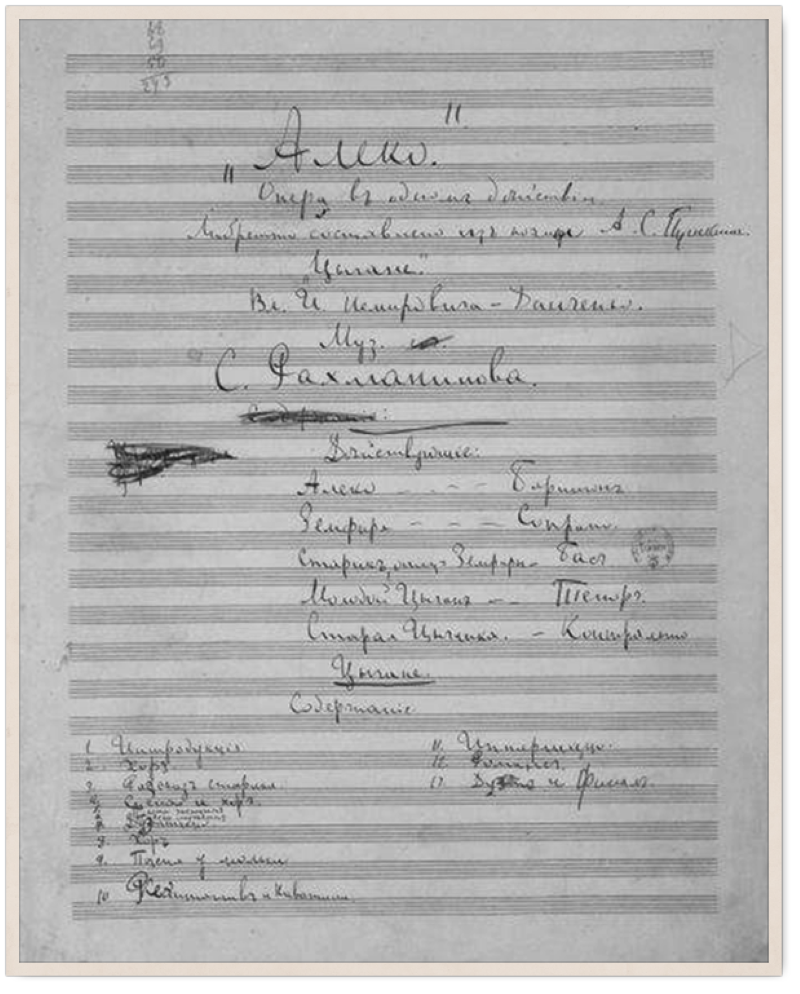 68
59
50
293
„Алеко."
Опера въ одномъ дѣйствіи.
Либретто составлено изъ поэмы А. С. Пушкина.
„Цыгане."
Вл. И. Немировича-Данченко.
Муз.
С. Рахманинова.
Содержаніе:
Дѣйствующіе:
Алеко - - - Баритонъ.
Земфира - - - Сопрано.
Старикъ, отецъ Земфиры - Басъ
Молодой Цыганъ - - Теноръ.
Старая Цыганка. - Контральто
Цыгане.
Содержаніе
1 Интродукція
2. Хоръ
3. Разсказъ старика.
Сцена и хоръ.
8. Хоръ
9. Пѣсня у люльки
10 Речитативъ и Каватина.
11. Интермеццо.
12. Романсъ.
13 и Финалъ.